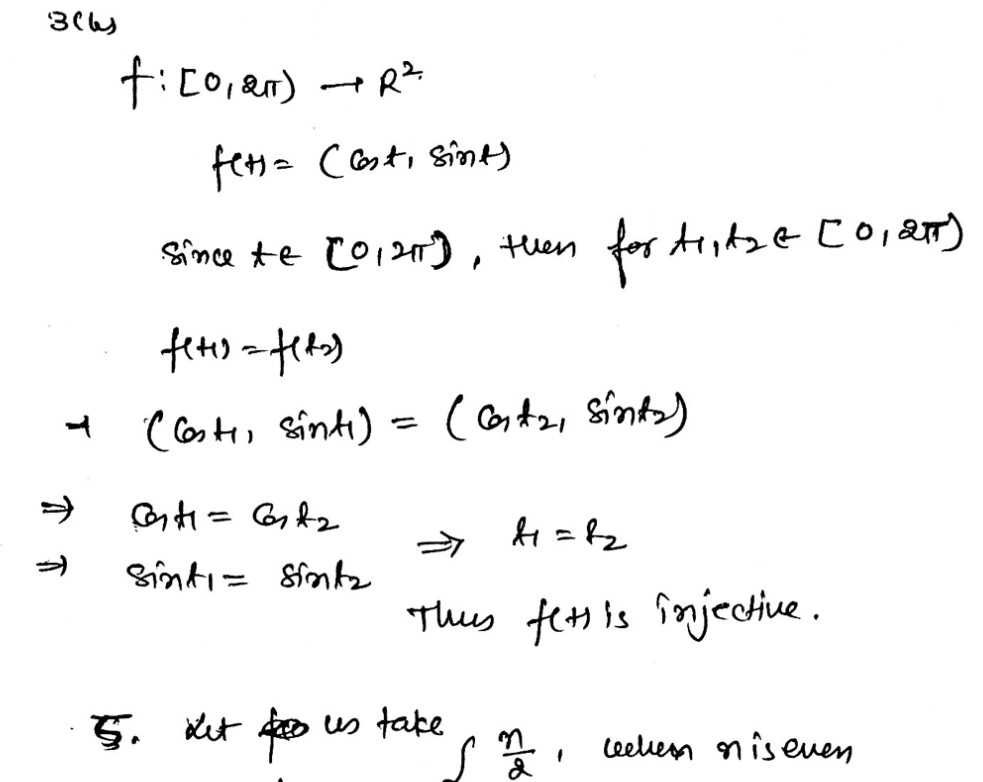 3(b)
f: [0, 2π) → R².
f(t) = (cos t, sin t)
Since t ∈ [0, 2π), then for t1, t2 ∈ [0, 2π)
f(t1) = f(t2)
→ (cos t1, sin t1) = (cos t2, sin t2)
⇒ cos t1 = cos t2
⇒ t1 = t2
⇒ sin t1 = sin t2
Thus f(t) is injective.
5. Let us take
{ n/2, when n is even